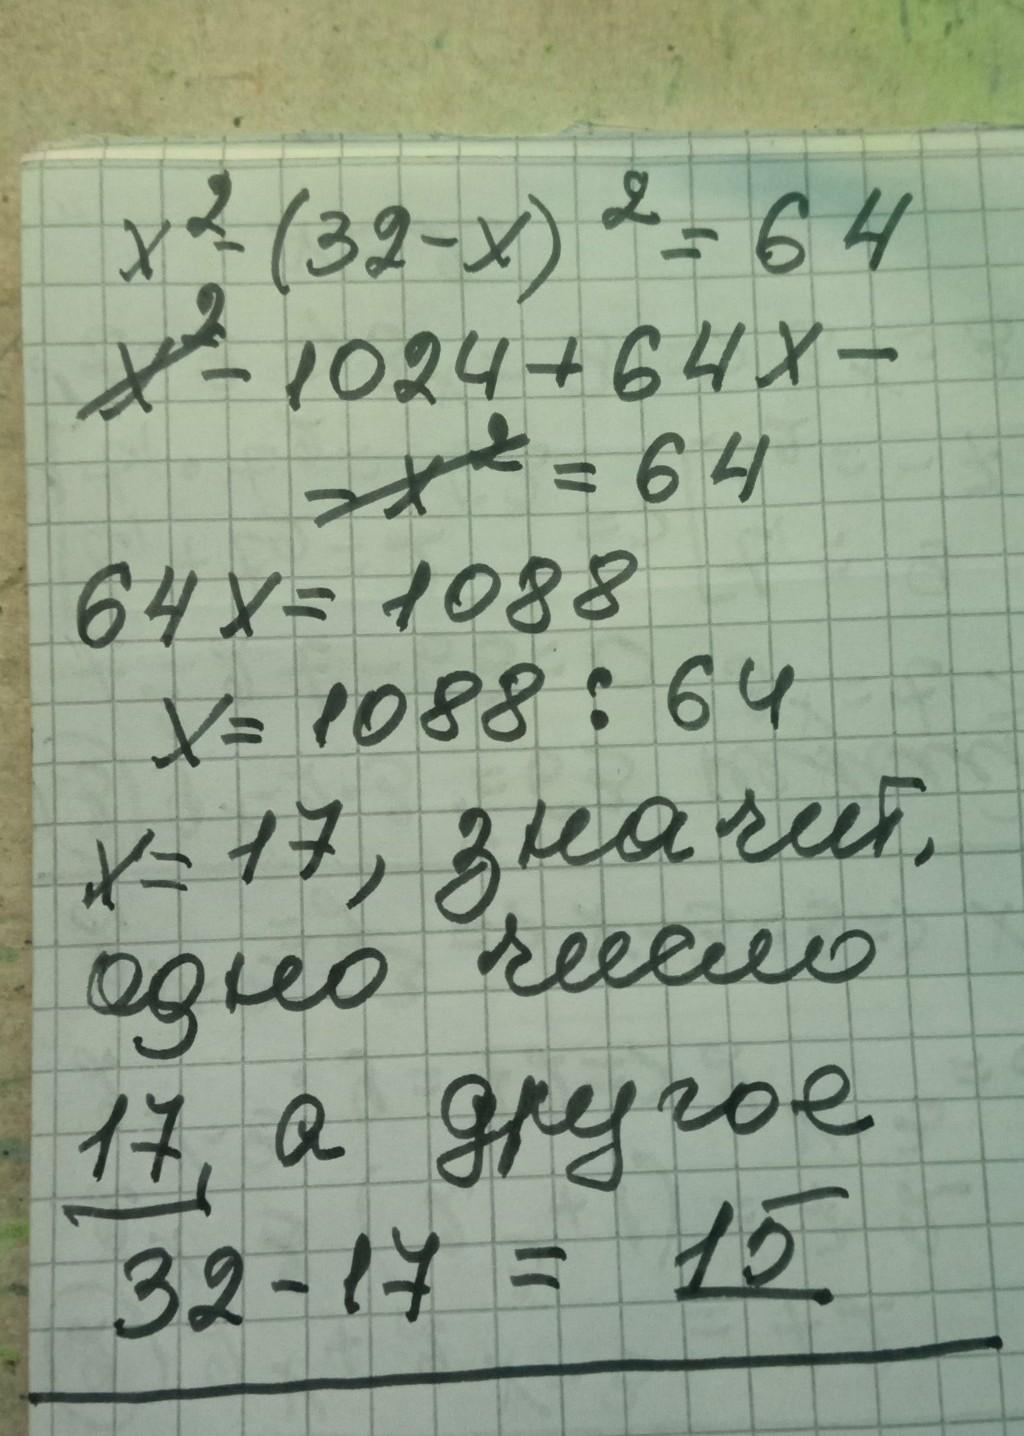 x² - (32 - x)² = 64
x² - 1024 + 64x -
- x² = 64
64x = 1088
x = 1088 : 64
x = 17, значит,
одно число
17, а другое
32 - 17 = 15